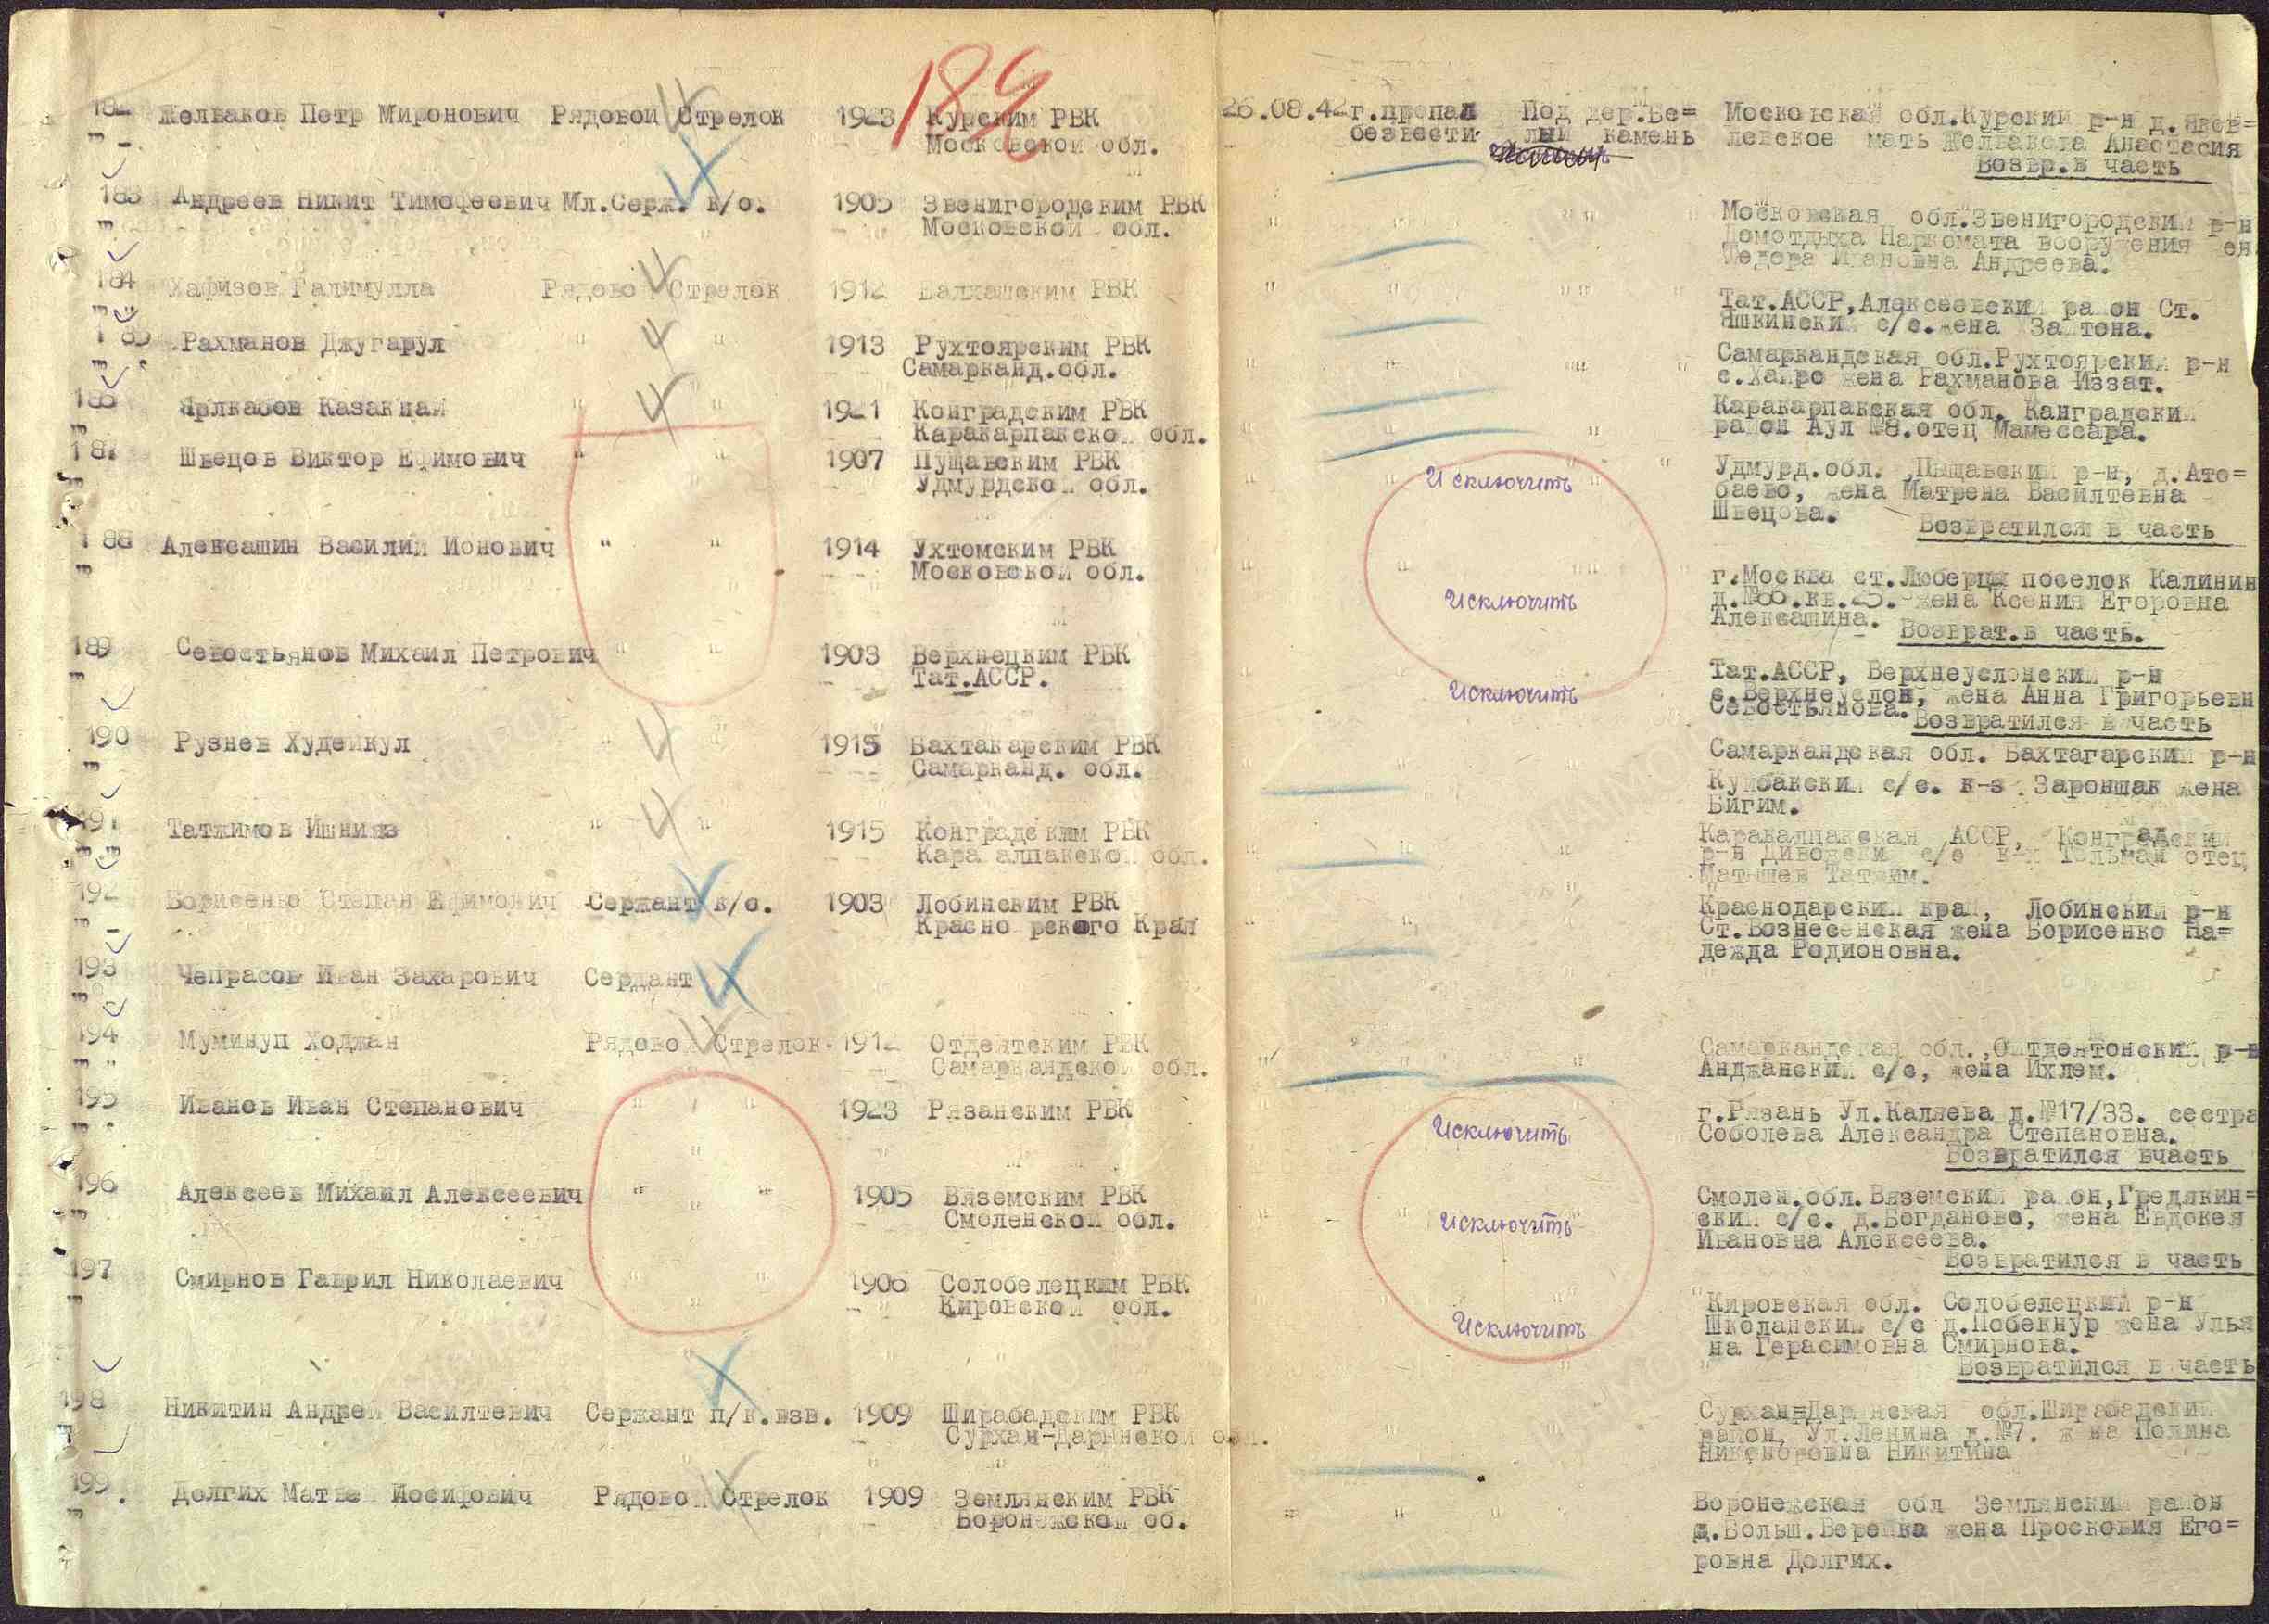 189
182 Желваков Петр Миронович Рядовой Стрелок 1923 Курским РВК 26.08.42г.пропал Под дер.Бе= Московская обл.Курский р-н д.Яков=
Московской обл. безвести лый камень левское мать Желвакова Анастасия
Возвр.в часть
183 Андреев Никит Тимофеевич Мл.Серж. к/о. 1905 Звенигородским РВК " " " Московская обл.Звенигородский р-н
Московской обл. Домотдыха Наркомата вооружения жен
Федора Ивановна Андреева.
184 Хафизов Галимулла Рядово Стрелок 1912 Балхашским РВК " " " Тат.АССР,Алексеевский район Ст.
Яшкински с/с.жена За тона.
185 Рахманов Джугарул " " 1913 Рухтоярским РВК " " " Самаркандская обл.Рухтоярский р-н
Самарканд.обл. с.Хайро жена Рахманова Иззат.
186 Ярлкабов Казакнай " " 1921 Конградским РВК Каракарпакская обл. Канградский
Каракарпакской обл. район Аул №8.отец Мамессара.
187 Швецов Виктор Ефимович " " 1907 Пущавским РВК " Исключить " Удмурд.обл. ,Пыщавский р-н, д.Ато=
Удмурдской обл. баево, жена Матрена Василтевна
Швецова. Возвратился в часть
188 Алексашин Василий Ионович " " 1914 Ухтомским РВК " " " г.Москва ст.Люберцы поселок Калинин
Московской обл. Исключить д.№66.кв.25. жена Ксения Егоровна
Алексашина. Возврат.в часть.
189 Севостьянов Михаил Петрович " " 1903 Верхнецким РВК " " Тат.АССР, Верхнеуслонский р-н
Тат.АССР. Исключить с.Верхнеуслон, жена Анна Григорьевн
Севостьянова. Возвратился в часть
190 Рузиев Худейкул " " 1915 Вахтакарским РВК Самаркандская обл. Бахтагарский р-н
Самарканд. обл. Куйбакски с/с. к-з Зароншак жена
Бигим.
191 Татжимов Ишнияз " " 1915 Конградским РВК " " Каракалпакская АССР, Конградский
Кара алпакской обл. р-н с/с к-з Тельман отец
Матышев Татжим.
192 Борисенко Степан Ефимович Сержант к/о. 1903 Лобинским РВК " " Краснодарский край, Лобинский р-н
Красно рского Края Ст.Вознесенская жена Борисенко На=
дежда Родионовна.
193 Чепрасов Иван Захарович Сердант
194 Муминуп Ходжан Рядово Стрелок 1912 РВК Самаркандская обл., р-н
Самаркандской обл. Анджански с/с, жена Ихлем.
195 Иванов Иван Степанович " " 1923 Рязанским РВК " Исключить " г.Рязань Ул.Каляева д.№17/33. сестра
Соболева Александра Степановна.
Возвратился вчасть
196 Алексеев Михаил Алексеевич " " 1905 Вяземским РВК " Исключить " Смолен.обл.Вяземский район,Гредякин=
Смоленской обл. ский с/с. д.Богданово, жена Евдокея
Ивановна Алексеева.
Возвратился в часть
197 Смирнов Гаврил Николаевич " " 1906 Солобелецким РВК " " " Кировская обл. Солобелецкий р-н
Кировской обл. Исключить Школански с/с д.Побекнур жена Улья
на Герасимовна Смирнова.
Возвратился в часть
198 Никитин Андрей Василтевич Сержант п/к.взв. 1909 Ширабадским РВК " " Сурхан=Дарьинская обл.Ширабадский
Сурхан-Дарьинской обл. район, Ул.Ленина д.№7. жена Полина
Никоноровна Никитина
199. Долгих Матве Иосифович Рядово Стрелок 1909 Землянским РВК " " " Воронежская обл Землянский район
Воронежской об. д.Больш.Верейка жена Просковия Его=
ровна Долгих.